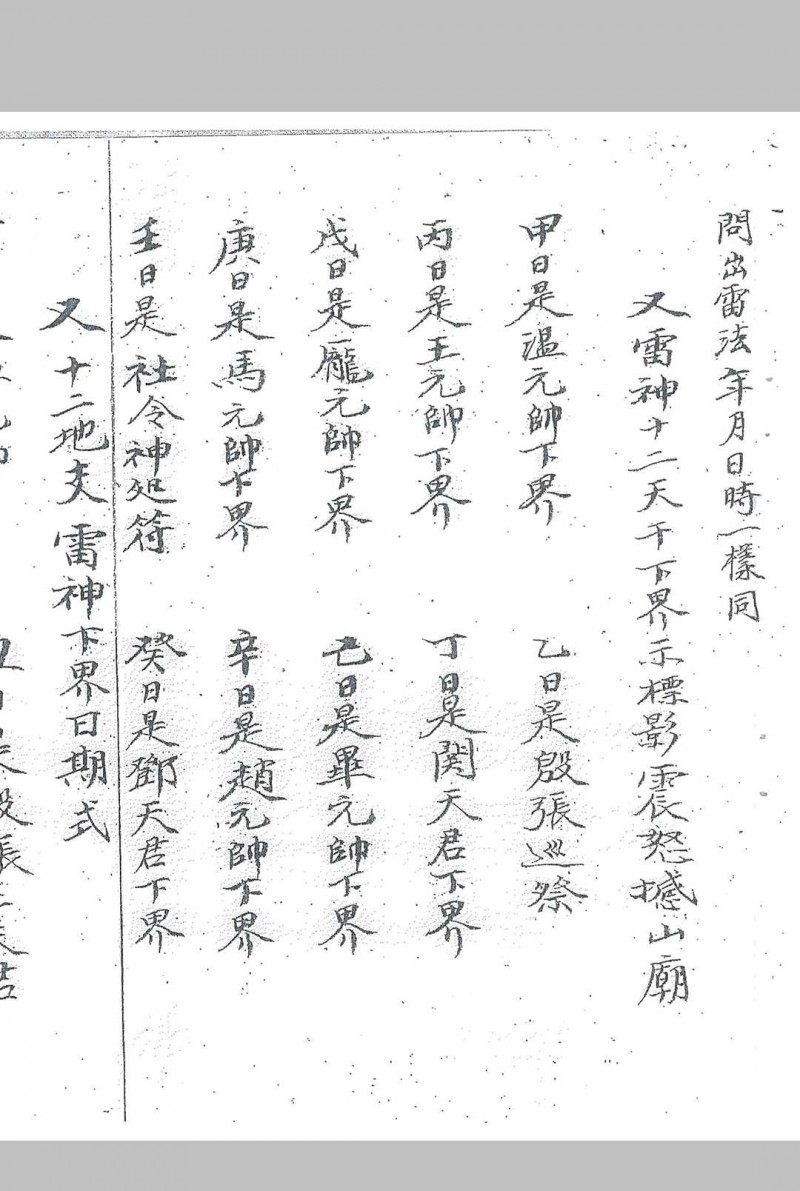 問出雷法年月日時一樣同
又雷神十二天干下界示標影震怒撼山廟
甲日是溫元帥下界
乙日是殷張巡祭
丙日是王元帥下界
丁日是関天君下界
戊日是龐元帥下界
己日是畢元帥下界
庚日是馬元帥下界
辛日是趙元帥下界
壬日是社令神処符
癸日是鄧天君下界
又十二地支雷神下界日期式